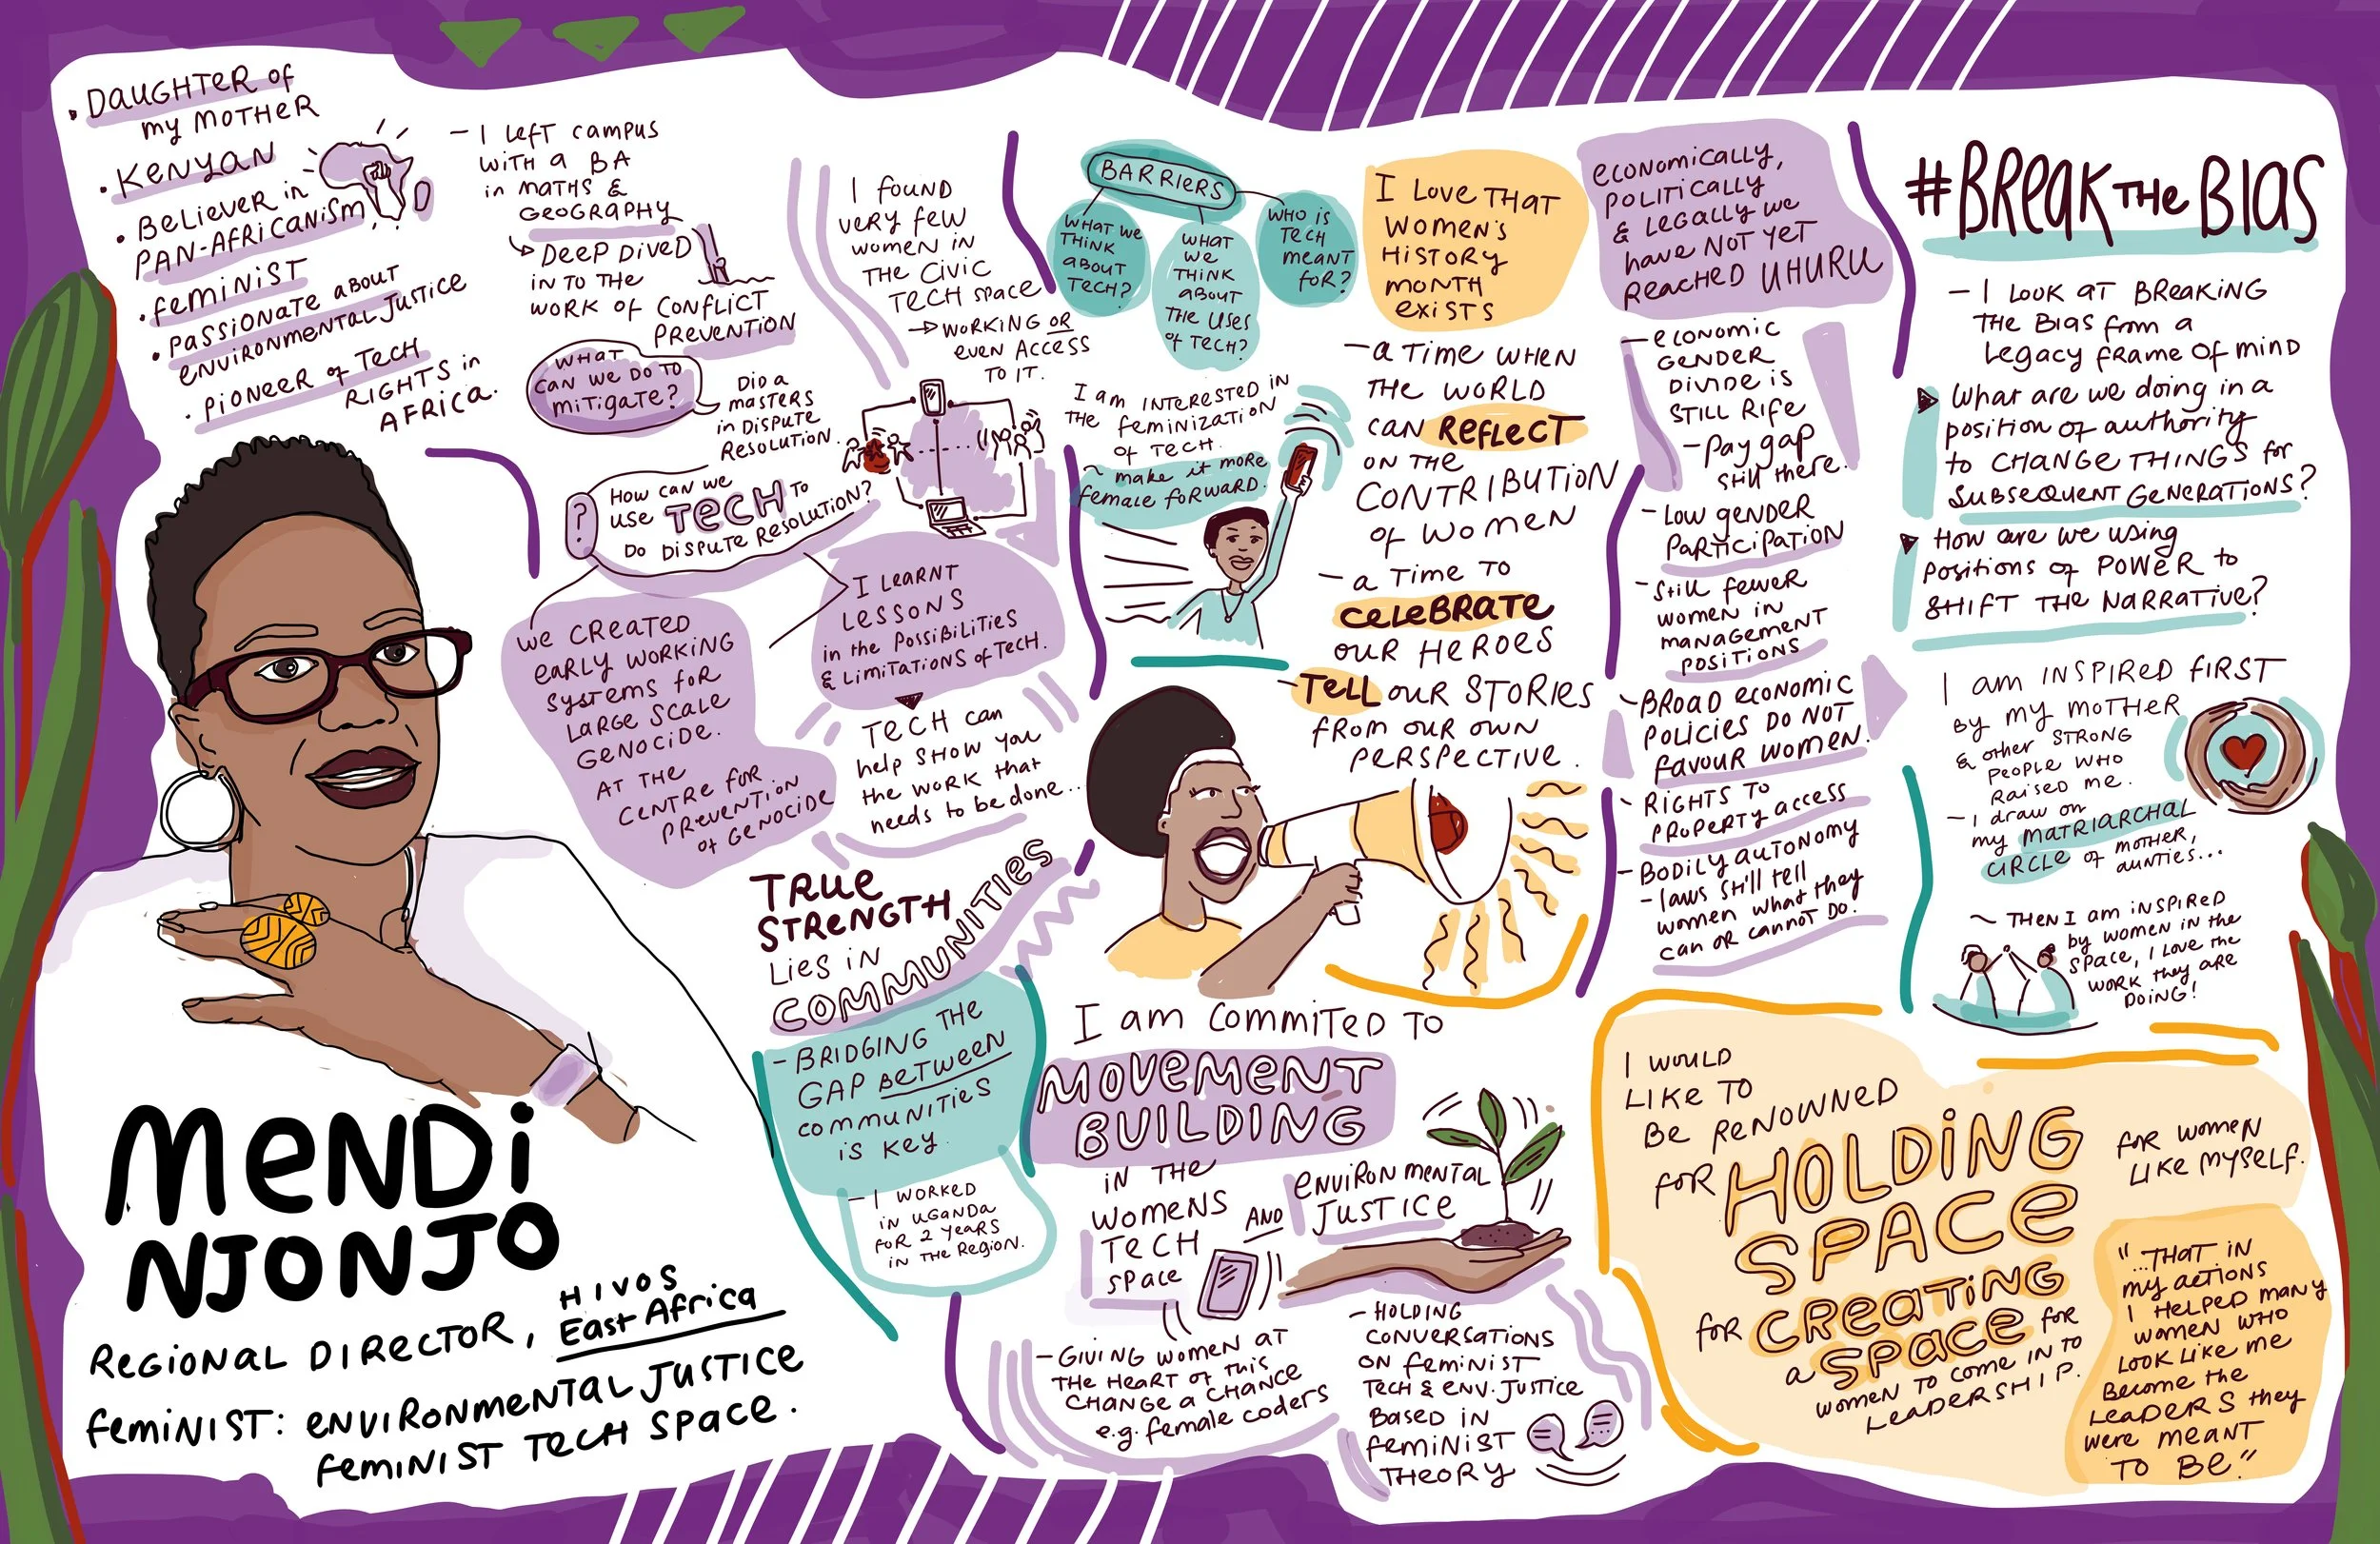 • DAUGHTER OF
MY MOTHER
• KENYAN
• BELIEVER IN
PAN-AFRICANISM
• FEMINIST
• PASSIONATE ABOUT
ENVIRONMENTAL JUSTICE
• PIONEER OF TECH
RIGHTS in
AFRICA.
MENDI
NJONJO
REGIONAL DIRECTOR, HIVOS
East Africa
FEMINIST: ENVIRONMENTAL JUSTICE
FEMINIST TECH SPACE.
- I LEFT CAMPUS
WITH A BA
in MATHS &
GEOGRAPHY
DEEP DIVED
IN TO THE
WORK OF CONFLICT
PREVENTION
WHAT
CAN WE DO TO
MITIGATE?
DID A
MASTERS
in DISPUTE
RESOLUTION.
?
HOW CAN WE
USE TECH TO
DO DISPUTE RESOLUTION?
WE CREATED
EARLY WORKING
SYSTEMS FOR
LARGE SCALE
GENOCIDE.
AT THE
CENTRE FOR
PREVENTION
OF GENOCIDE
I LEARNT
LESSONS
in the POSSIBILITIES
& LIMITATIONS of TECH.
TECH can
help SHOW you
the WORK that
needs to be done...
I FOUND
VERY FEW
WOMEN IN
THE CIVIC
TECH SPACE
WORKING OR
EVEN ACCESS
TO IT.
TRUE
STRENGTH
LIES IN
COMMUNITIES
- BRIDGING THE
GAP BETWEEN
COMMUNITIES
IS KEY.
- I WORKED
IN UGANDA
FOR 2 YEARS
IN THE REGION.
BARRIERS
WHAT WE
THINK
ABOUT
TECH?
WHAT
WE
THINK
ABOUT
THE USES
OF TECH?
WHO IS
TECH
MEANT
FOR?
I am INTERESTED IN
THE feminization
of TECH.
~ make it more
female FORWARD.
I LOVE THAT
WOMEN'S
HISTORY
MONTH
EXISTS
- A TIME WHEN
THE WORLD
CAN REFLECT
ON THE
CONTRIBUTION
OF WOMEN
- A TIME TO
CELEBRATE
OUR HEROES
- TELL OUR STORIES
FROM OUR OWN
PERSPECTIVE.
I am COMMITED TO
MOVEMENT
BUILDING
IN THE
WOMENS
TECH
SPACE
AND
ENVIRONMENTAL
JUSTICE
- GIVING WOMEN AT
THE HEART of this
CHANGE A CHANCE
e.g. female coders
- HOLDING
CONVERSATIONS
ON FEMINIST
TECH & ENV. JUSTICE
BASED IN
FEMINIST
THEORY
ECONOMICALLY,
POLITICALLY
& LEGALLY WE
have NOT YET
REACHED UHURU
- ECONOMIC
GENDER
DIVIDE IS
STILL RIFE
- Pay gap
still there.
- LOW GENDER
PARTICIPATION
- STILL FEWER
WOMEN IN
MANAGEMENT
POSITIONS
- BROAD ECONOMIC
POLICIES DO NOT
FAVOUR WOMEN.
- RIGHTS TO
PROPERTY access
- BODILY AUTONOMY
- laws still tell
women what they
can OR cannot DO.
#BREAK THE BIAS
- I LOOK AT BREAKING
THE BIAS from a
Legacy FRAME OF mind
What are we doing in a
position of authority
to CHANGE THINGS for
SUBSEQUENT GENERATIONS?
How are we using
positions of POWER to
SHIFT THE NARRATIVE?
I am INSPIRED FIRST
BY MY MOTHER
& other STRONG
PEOPLE WHO
RAISED ME.
- I draw on
my MATRIARCHAL
CIRCLE of MOTHER,
AUNTIES...
~ THEN I am INSPIRED
by WOMEN IN the
SPACE, I LOVE the
WORK they ARE
DOING!
I WOULD
LIKE TO
BE RENOWNED
FOR HOLDING
SPACE
FOR WOMEN
LIKE MYSELF.
FOR CREATING
A SPACE FOR
WOMEN TO COME IN TO
LEADERSHIP.
"...THAT IN
MY ACTIONS
I HELPED MANY
WOMEN WHO
LOOK LIKE ME
BECOME the
LEADERS they
were MEANT
TO BE."